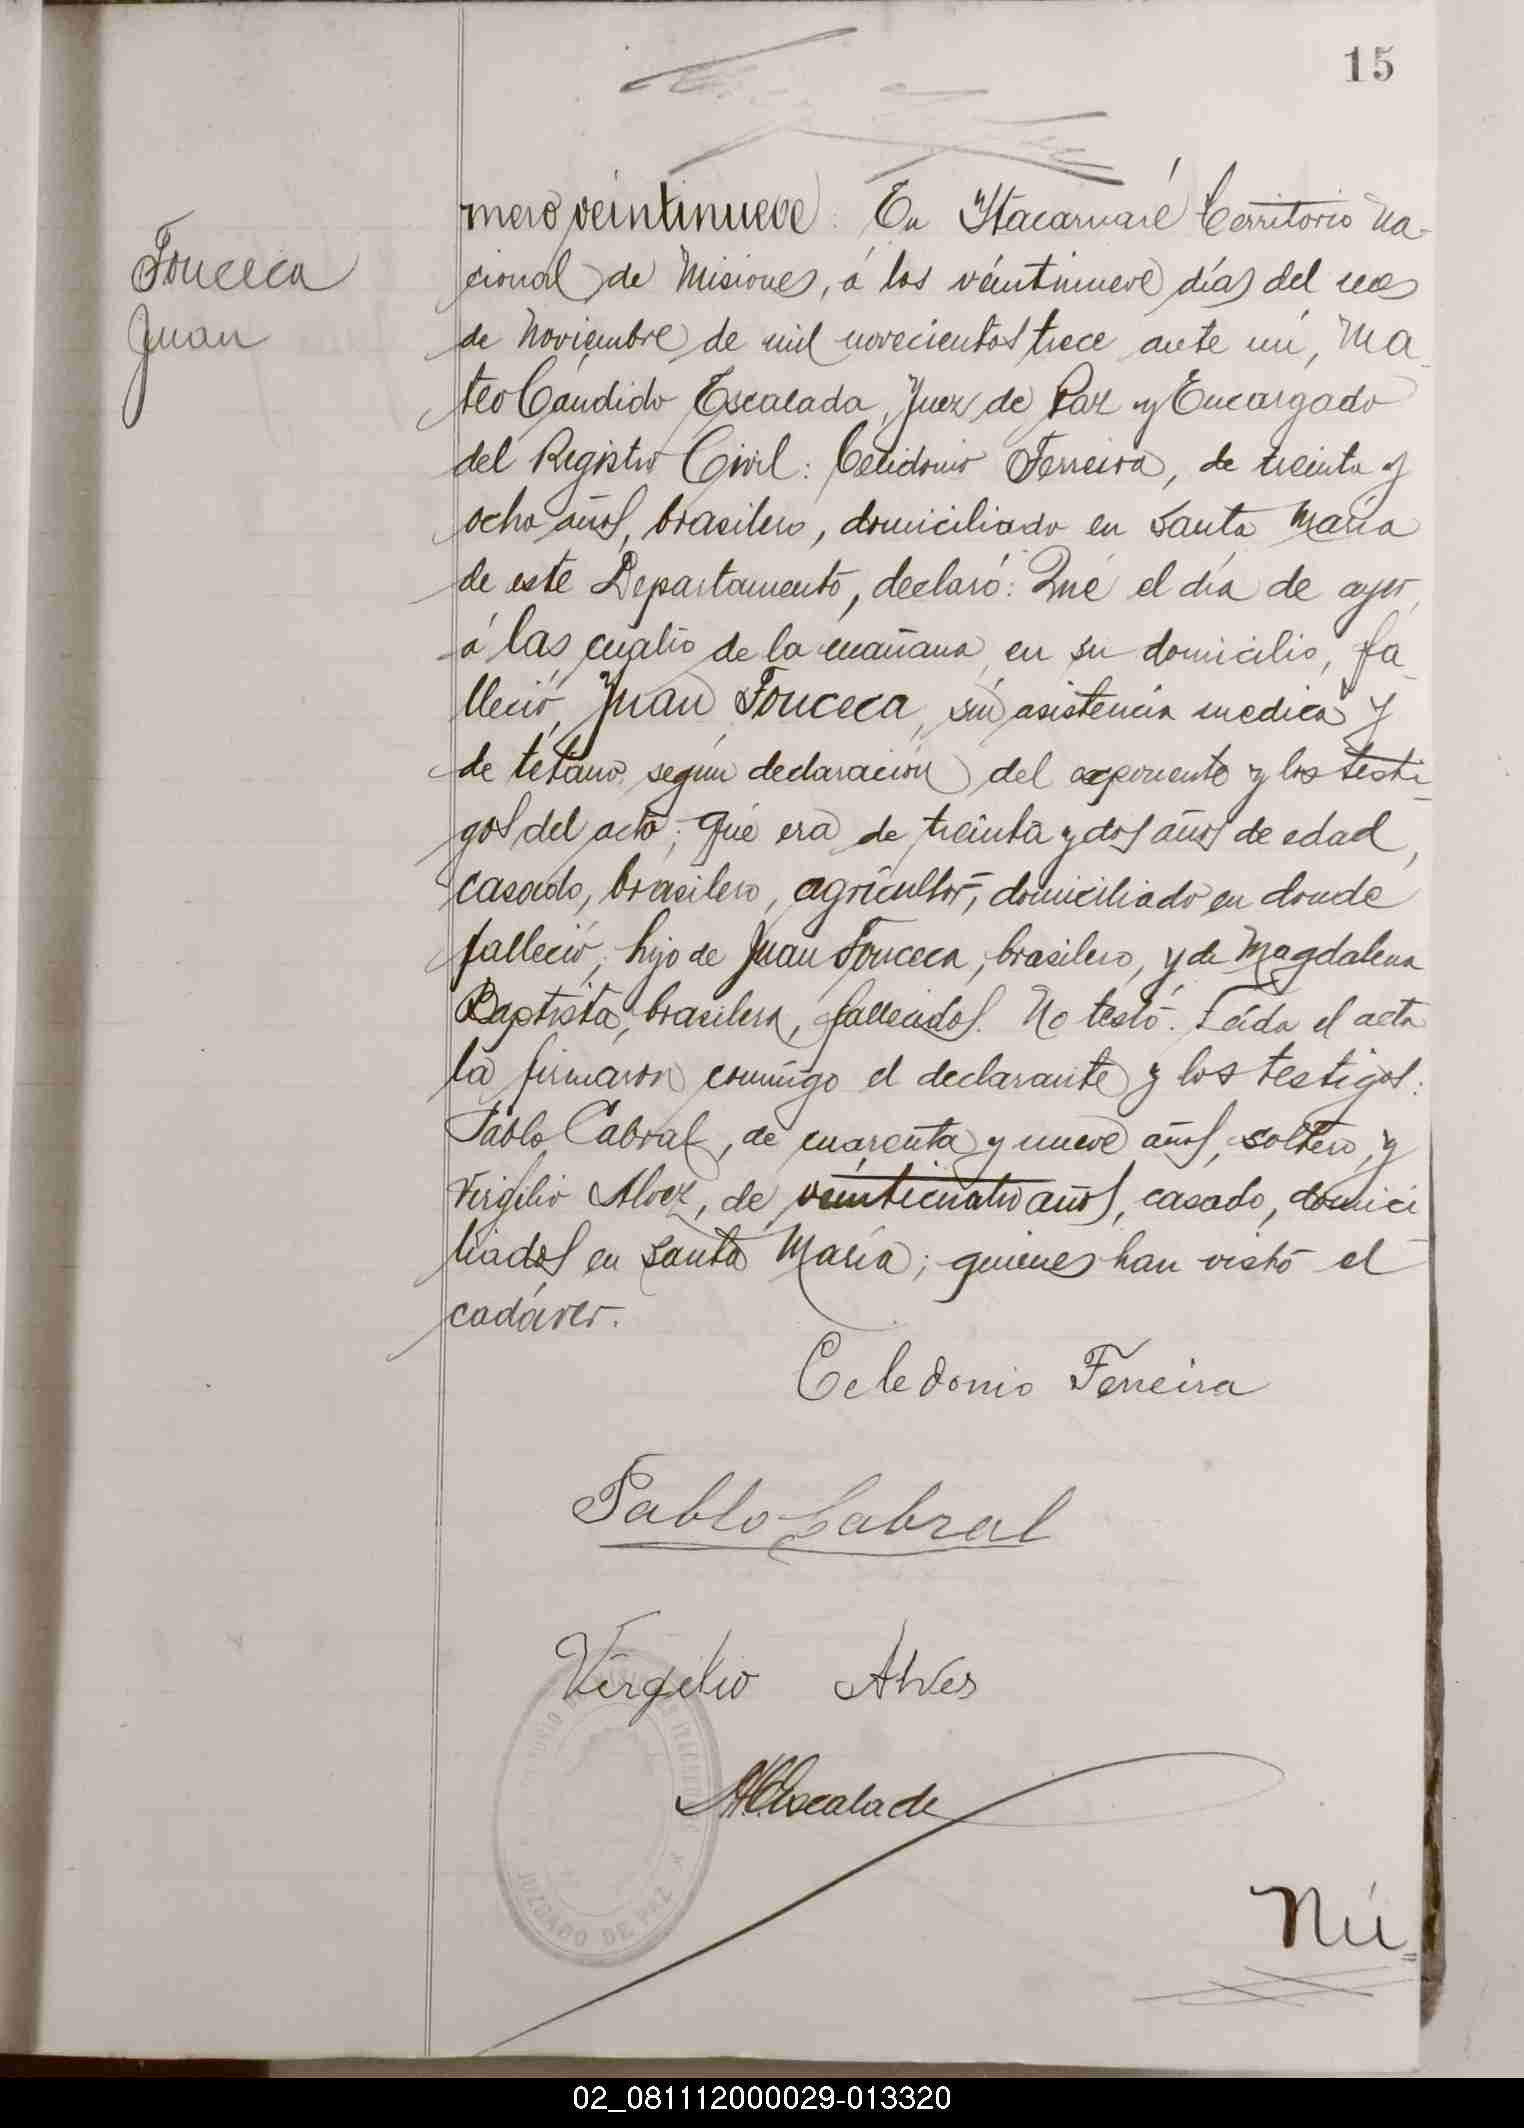 15
Fonceca
Juan
mero veintinueve: En Ytacaruaré Territorio Na-
cional de Misiones, á los veintinueve días del mes
de Noviembre de mil novecientos trece ante mí, Ma-
teo Cándido Escalada, Juez de Paz y Encargado
del Registro Civil: Celidonio Ferreira, de treinta y
ocho años, brasilero, domiciliado en Santa María
de este Departamento, declaró: Qué el día de ayer,
á las cuatro de la mañana, en su domicilio, fa-
lleció, Juan Fonceca, sin asistencia medica y
de tétano, según declaración del exponente y los testi-
gos del acto; qué era de treinta y dos años de edad,
casado, brasilero, agricultor, domiciliado en donde
falleció, hijo de Juan Fonceca, brasilero, y de Magdalena
Baptista, brasilera, fallecidos. No testó. Leída el acta
la firmaron conmigo el declarante y los testigos:
Pablo Cabral, de cuarenta y nueve años, soltero, y
Virgilio Alvez, de veinticuatro años, casado, domici
liados en Santa María; quienes han visto el
cadáver.
Celedonio Ferreira
Pablo Cabral
Virgilio Alves
MCEscalada
JUZGADO DE PAZ
Nú=
02_081112000029-013320